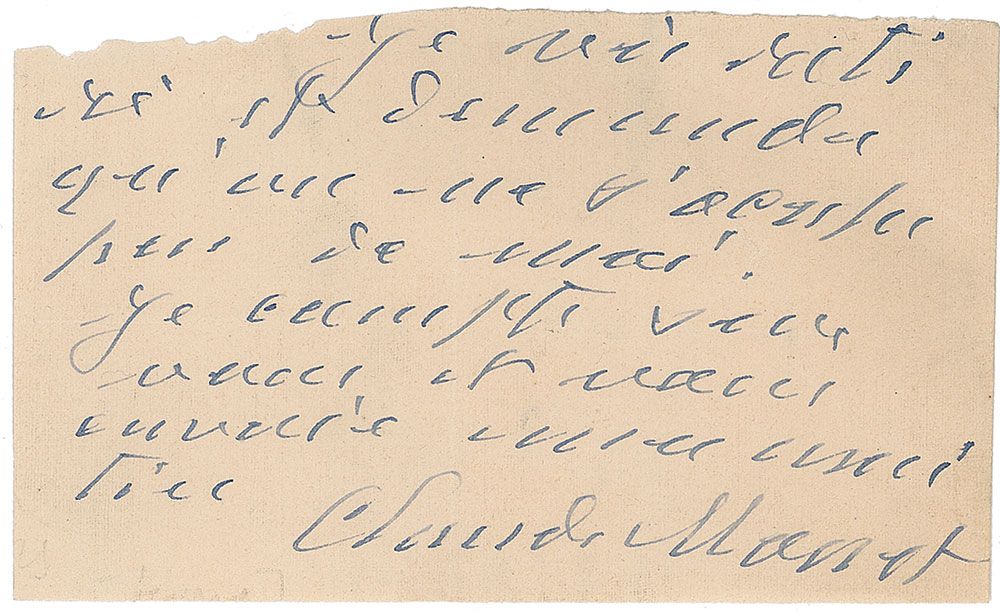 Je vis reti
ré et demande
qu'on ne s'occupe
pas de moi.
Je compte sur
vous et vous
envoie mon ami
tié
Claude Monet